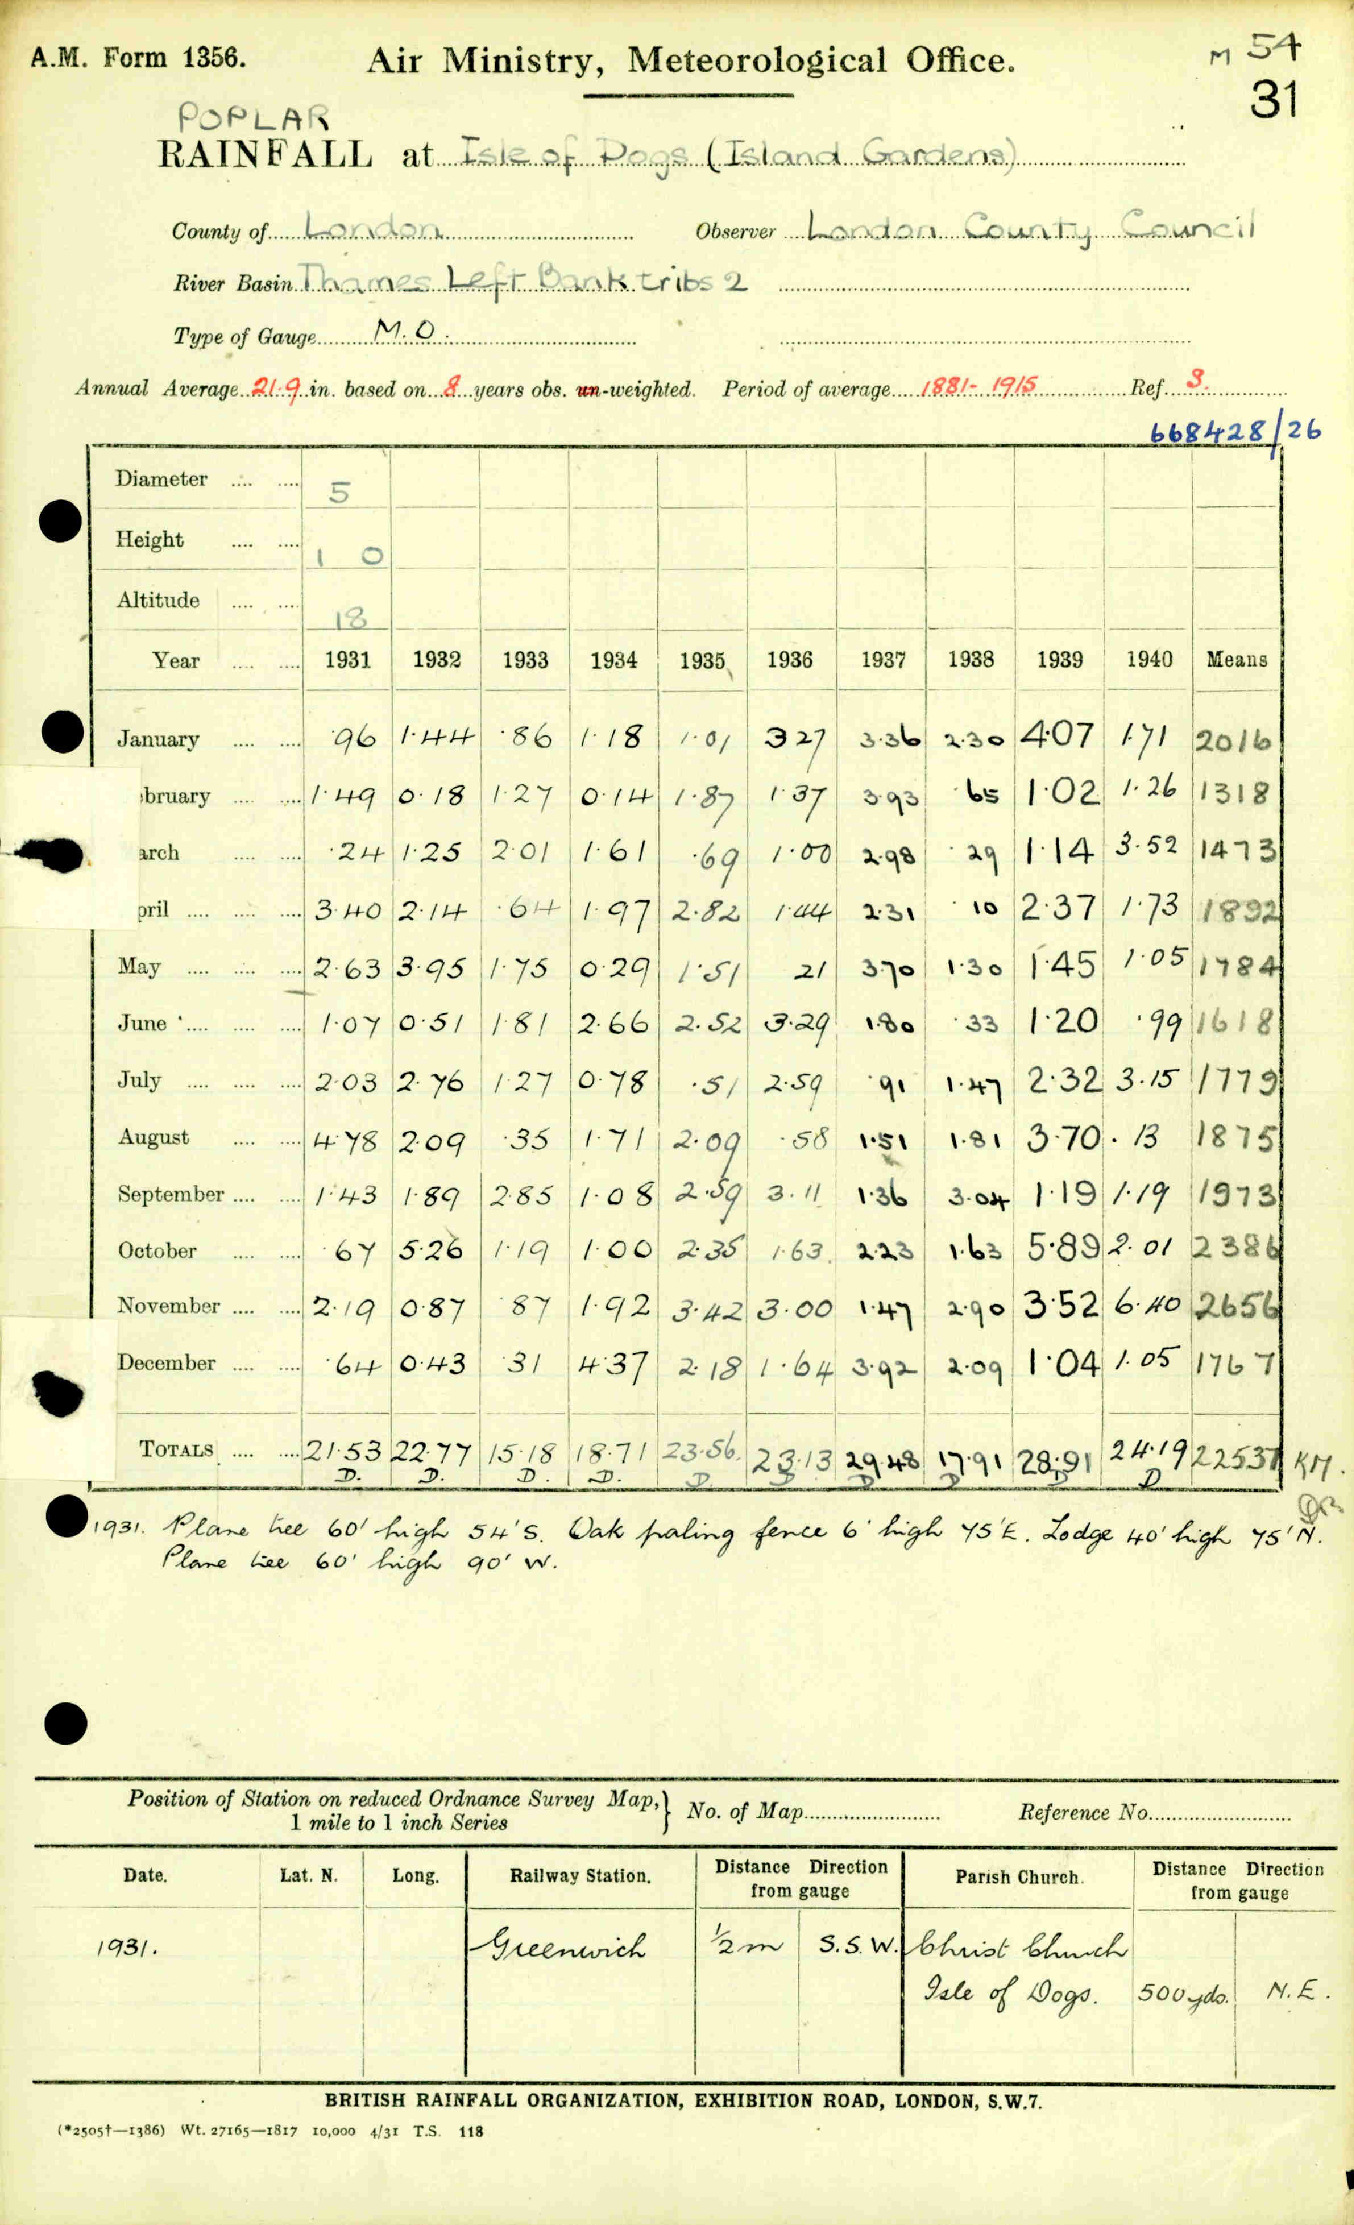 A.M. Form 1356. Air Ministry, Meteorological Office. M 54
31
POPLAR
RAINFALL at Isle of Dogs (Island Gardens)
County of London Observer London County Council
River Basin Thames Left Bank tribs 2
Type of Gauge M.O.
Annual Average 21.9 in. based on 8 years obs. un-weighted. Period of average 1881-1915 Ref. 3.
668428/26
Diameter 5
Height 1 0
Altitude 18
Year 1931 1932 1933 1934 1935 1936 1937 1938 1939 1940 Means
January .96 1.44 .86 1.18 1.01 3.27 3.36 2.30 4.07 1.71 2016
bruary 1.49 0.18 1.27 0.14 1.87 1.37 3.93 .65 1.02 1.26 1318
arch .24 1.25 2.01 1.61 .69 1.00 2.98 .29 1.14 3.52 1473
pril 3.40 2.14 .64 1.97 2.82 1.44 2.31 .10 2.37 1.73 1892
May 2.63 3.95 1.75 0.29 1.51 21 3.70 1.30 1.45 1.05 1784
June 1.07 0.51 1.81 2.66 2.52 3.29 1.80 .33 1.20 .99 1618
July 2.03 2.76 1.27 0.78 .51 2.59 .91 1.47 2.32 3.15 1779
August 4.78 2.09 .35 1.71 2.09 .58 1.51 1.81 3.70 .13 1875
September 1.43 1.89 2.85 1.08 2.59 3.11 1.36 3.04 1.19 1.19 1973
October .67 5.26 1.19 1.00 2.35 1.63 2.23 1.63 5.89 2.01 2386
November 2.19 0.87 .87 1.92 3.42 3.00 1.47 2.90 3.52 6.40 2656
December .64 0.43 .31 4.37 2.18 1.64 3.92 2.09 1.04 1.05 1767
TOTALS 21.53 22.77 15.18 18.71 23.56 23.13 29.48 17.91 28.91 24.19 22537 KM.
D. D. D. D. D D D D D D
1931. Plane tree 60' high 54'S. Oak paling fence 6' high 75'E. Lodge 40' high 75'N.
Plane tree 60' high 90' W.
Position of Station on reduced Ordnance Survey Map, No. of Map Reference No.
1 mile to 1 inch Series
Date. Lat. N. Long. Railway Station. Distance Direction from gauge Parish Church. Distance Direction from gauge
1931. Greenwich ½m S.S.W. Christ Church
Isle of Dogs. 500 yds. N.E.
BRITISH RAINFALL ORGANIZATION, EXHIBITION ROAD, LONDON, S.W.7.
(*2505†—1386) Wt. 27165—1817 10,000 4/31 T.S. 118